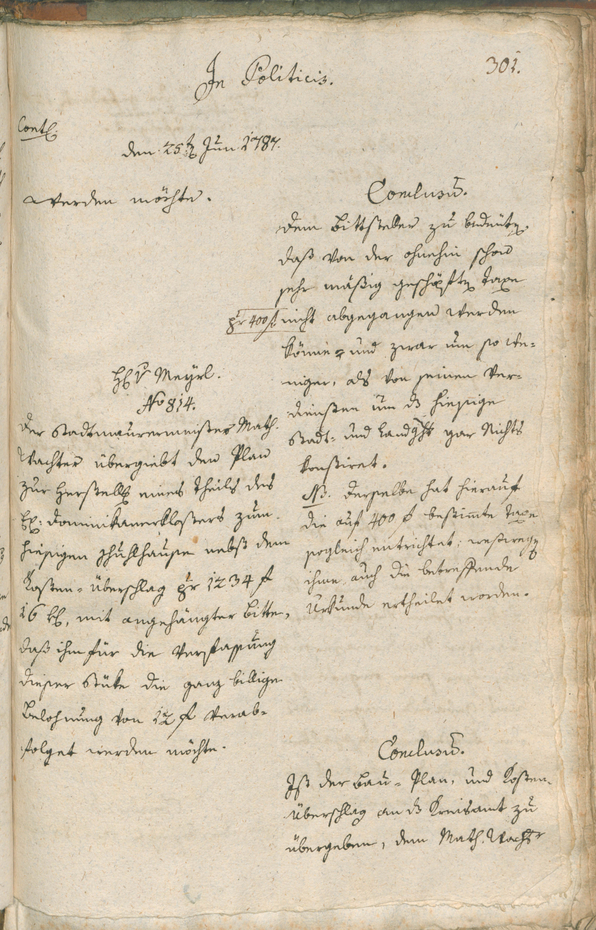 In Politicis.
301.
Contl.
den 25t Jun 1787.
werden möchte.
Conclusū.
dem Bittsteller zu bedeutē,
daß von der ohnehin schon
sehr mäßig geschöpftē Taxe
pr 400 f nicht abgegangen werden
könne, und zwar um so we-
niger, als von seinen Ver-
diensten um dß hiesige
Stadt- und Landght gar Nichts
konstiret.
NB. derselbe hat hierauf
die auf 400 f bestimmte Taxe
sogleich entrichtet; weßwegē
ihme auch die betreffende
Urkunde ertheilet worden.
H. V Meyrl.
No 814.
Der Stadtmaurermeister Math.
Wachter übergiebt den Plan
zur Herstellg eines Theils des
Ex: Dominikanerklosters zum
hiesigen Schuhlhause nebst dem
Kosten-überschlag pr 1234 f
16 kr, mit angehängter Bitte,
daß ihm für die Verfassung
dieser Stüke die ganz billige
Belohnung von 12 f verab-
folget werden möchte.
Conclusū.
Ist der Bau-Plan, und Kosten-
überschlag an dß Kreisamt zu
übergeben, dem Math. Wachter